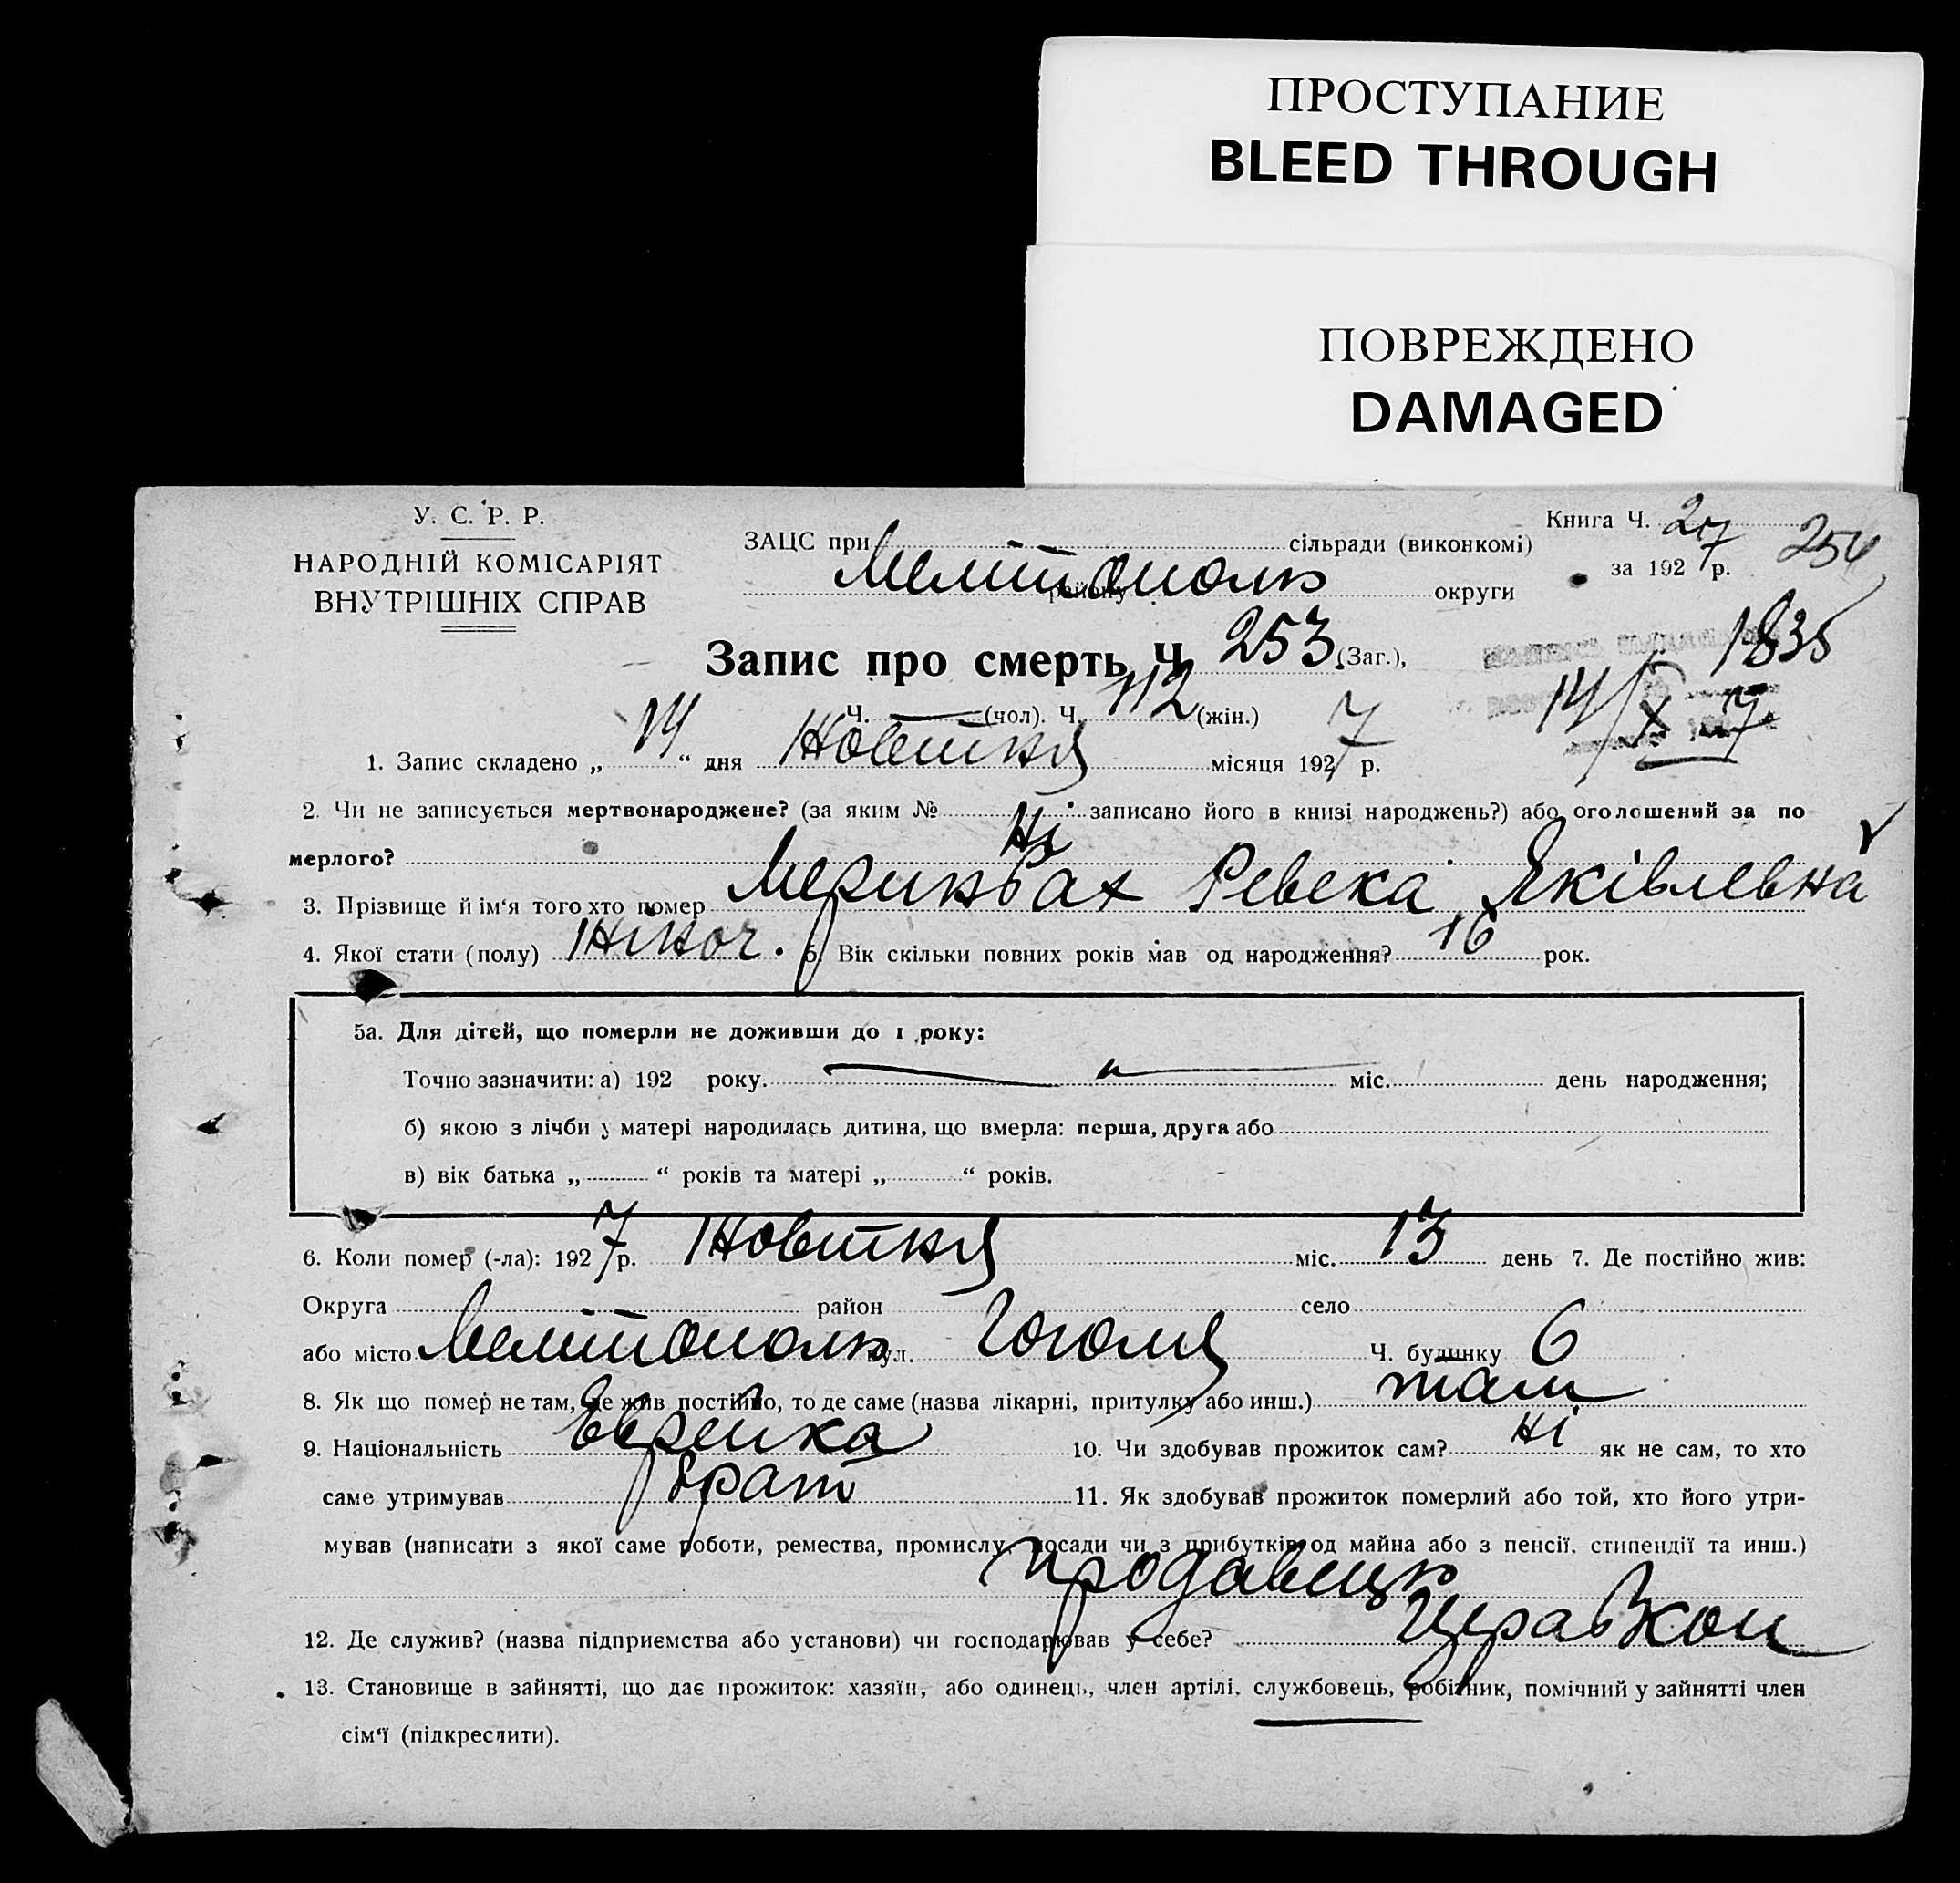 ПРОСТУПАНИЕ
BLEED THROUGH
ПОВРЕЖДЕНО
DAMAGED
У. С. Р. Р.
НАРОДНІЙ КОМІСАРІЯТ
ВНУТРІШНІХ СПРАВ
ЗАЦС при сільради (виконкомі)
Мелітополь району округи
Книга Ч. 27 254
за 1927 р.
Запис про смерть Ч 253 (Заг.), 1835
Ч. — (чол). Ч. 112 (жін.) 14/X 7
1. Запис складено „14“ дня Жовтня місяця 1927 р.
2. Чи не записується мертвонароджене? (за яким № записано його в книзі народжень?) або оголошений за по
мерлого? Ні
3. Прізвище й ім‘я того хто помер Меринбах Ревека Яківлевна
4. Якої стати (полу) Жіноч. 5. Вік скільки повних років мав од народження? 16 рок.
5а. Для дітей, що померли не доживши до 1 року:
Точно зазначити: а) 192 року. міс. день народження;
б) якою з лічби у матері народилась дитина, що вмерла: перша, друга або
в) вік батька „ “ років та матері „ “ років.
6. Коли помер (-ла): 1927 р. Жовтня міс. 13 день 7. Де постійно жив:
Округа район село
або місто Мелітополь вул. Гоголя Ч. будинку 6
8. Як що помер не там, де жив постійно, то де саме (назва лікарні, притулку або инш.) там
9. Національність Еврейка 10. Чи здобував прожиток сам? ні як не сам, то хто
саме утримував брат 11. Як здобував прожиток померлий або той, хто його утри-
мував (написати з якої саме роботи, ремества, промислу, посади чи з прибутків од майна або з пенсії, стипендії та инш.)
продавець
12. Де служив? (назва підприємства або установи) чи господарював у себе?
13. Становище в зайнятті, що дає прожиток: хазяїн, або одинець, член артілі, службовець, робітник, помічний у зайнятті член
сім‘ї (підкреслити).